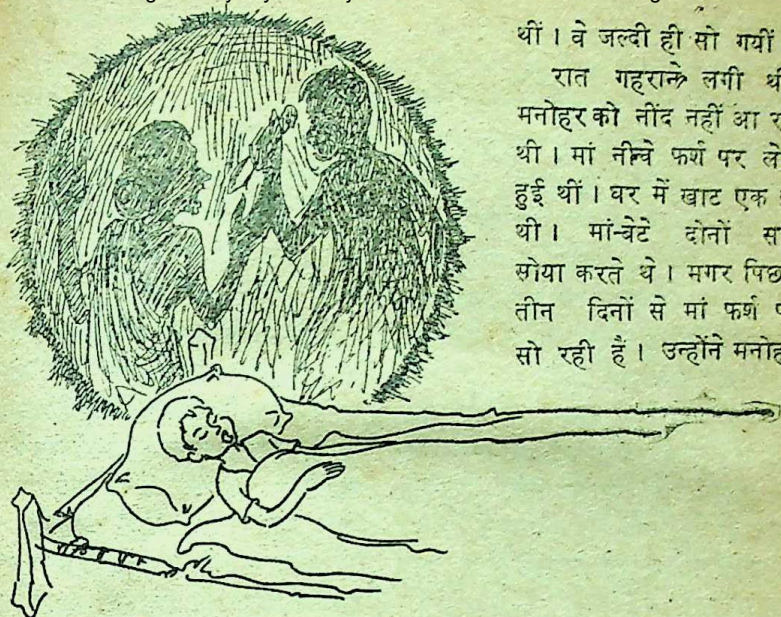 थीं । वे जल्दी ही सो गयीं
रात गहराने लगी थी
मनोहर को नींद नहीं आ र
थी । मां नीचे फर्श पर ले
हुई थीं । घर में खाट एक
थी । मां-बेटे दोनों सा
सोया करते थे । मगर पिछ
तीन दिनों से मां फर्श प
सो रही हैं । उन्होंने मनोह